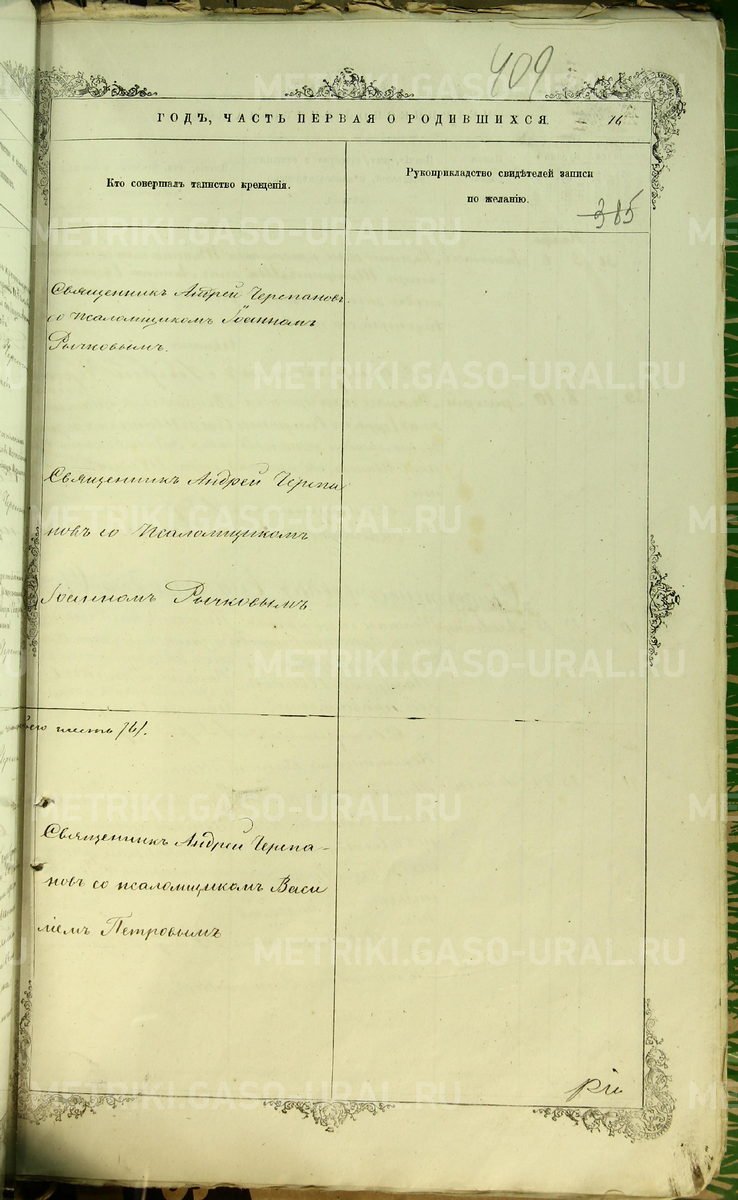 409
ГОДЪ, ЧАСТЬ ПЕРВАЯ О РОДИВШИХСЯ.
16
Кто совершалъ таинство крещенія.
Рукоприкладство свидѣтелей записи
по желанію.
385
Священникъ Андрей Черепановъ
со псаломщикомъ Іоанномъ
Рычковымъ.
Священникъ Андрей Черепа
новъ со Псаломщикомъ
Іоанномъ Рычковымъ
шесть /6/.
Священникъ Андрей Черепа-
новъ со псаломщикомъ Васи
ліемъ Петровымъ
METRIKI.GASO-URAL.RU